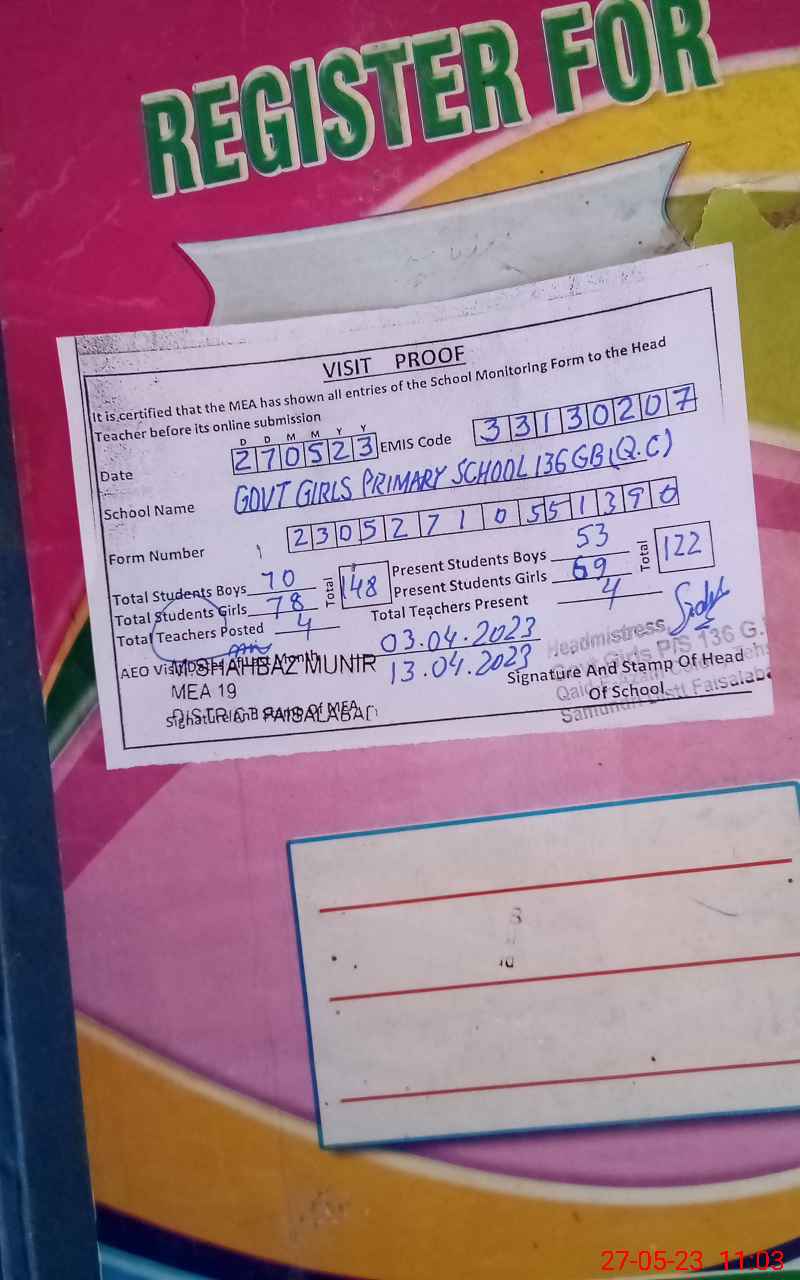 REGISTER FOR
VISIT PROOF
It is certified that the MEA has shown all entries of the School Monitoring Form to the Head
Teacher before its online submission
D D M M Y Y
Date 270523 EMIS Code 33130207
School Name GOVT GIRLS PRIMARY SCHOOL 136 GB (Q.C)
Form Number 23052710551390
Total Students Boys 70 Total 148 Present Students Boys 53 Total 122
Total Students Girls 78 Present Students Girls 69
Total Teachers Posted 4 Total Teachers Present 4
AEO Visit 03.04.2023
13.04.2023
M.SHAHBAZ MUNIR
MEA 19
DISTRICT FAISALABAD
Signature And Stamp Of MEA
Headmistress
Govt Girls P/S 136 G.
Samundri Distt Faisalabad
Signature And Stamp Of Head
Of School
27-05-23 11:03